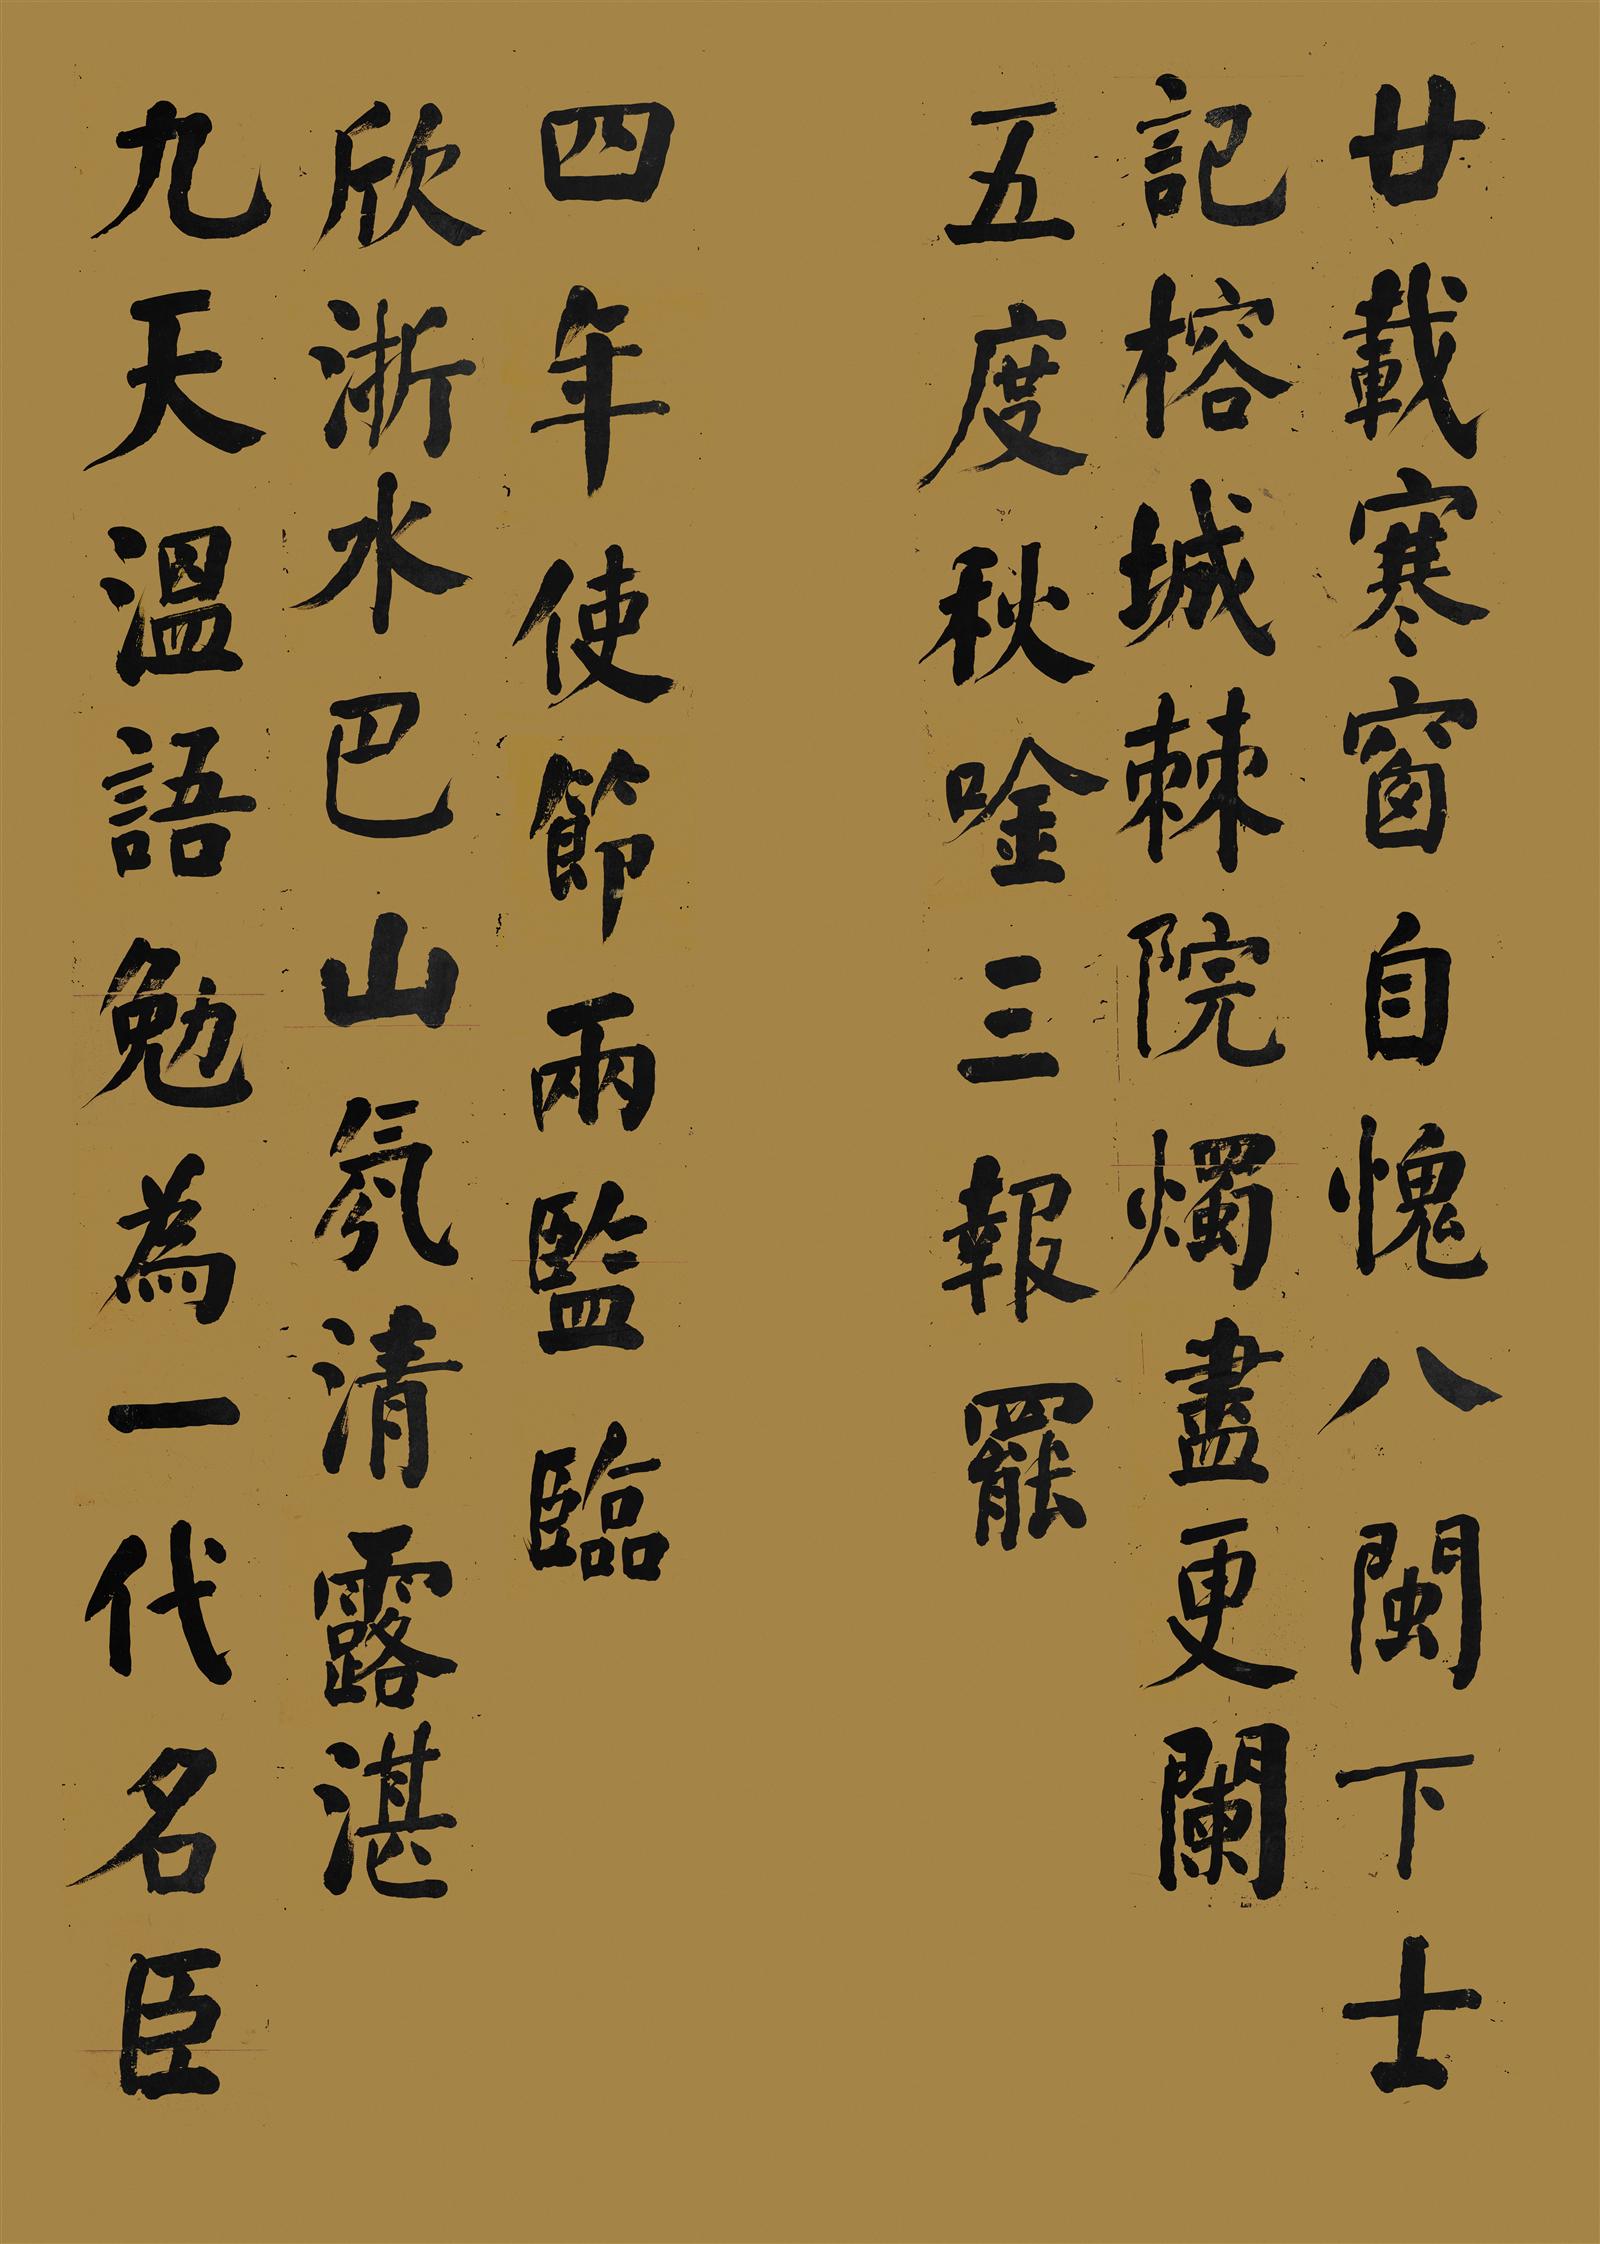 廿載寒窗自愧八閩下士
記榕城棘院燭盡更闌
五度秋唫三報罷
四年使節兩監臨
欣淛水巴山氛清露湛
九天溫語勉為一代名臣